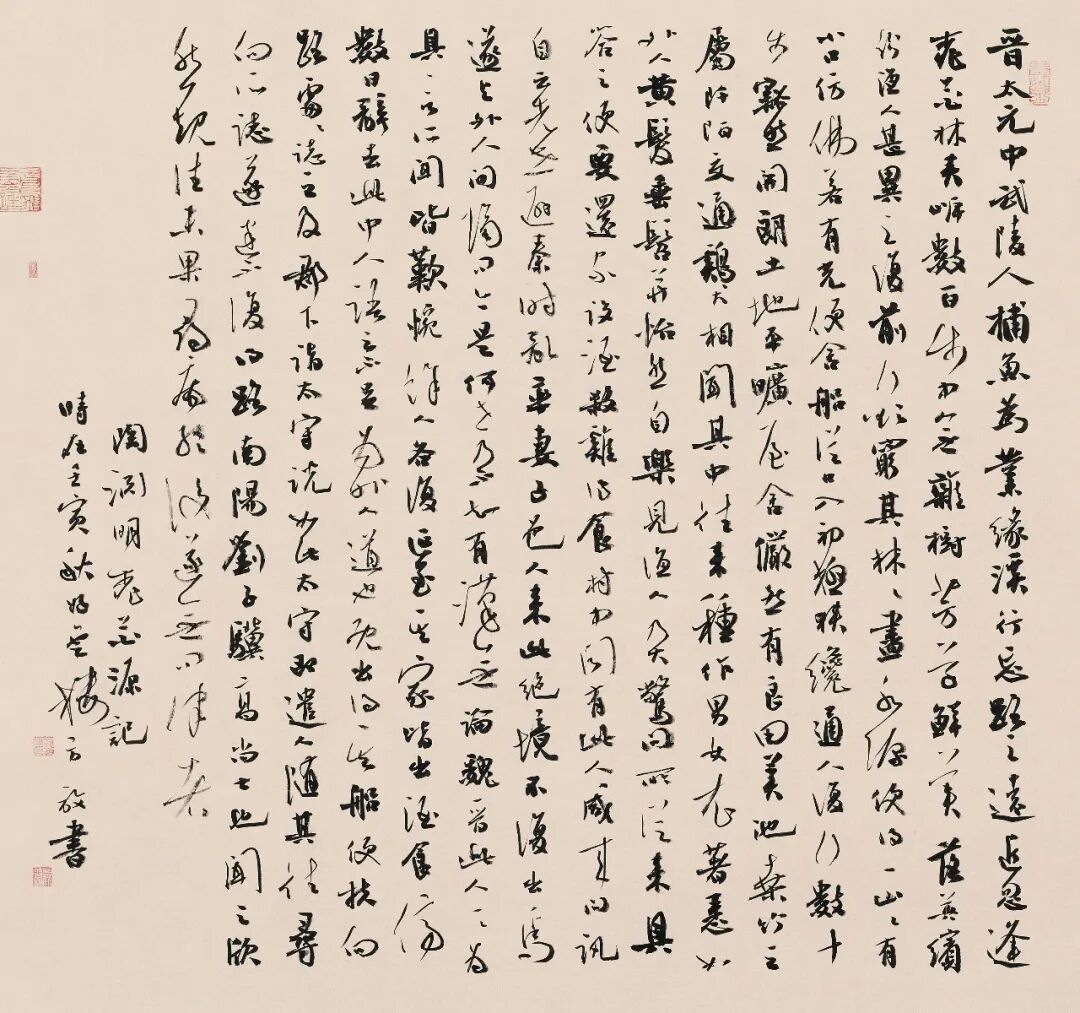 晋太元中武陵人捕魚為業緣溪行忘路之遠近忽逢
桃花林夾岸數百步中無雜樹芳草鮮美落英繽
紛漁人甚異之復前行欲窮其林〻盡水源便得一山〻有
小口仿佛若有光便舍船從口入初極狹纔通人復行數十
步豁然開朗土地平曠屋舍儼然有良田美池桑竹之
屬阡陌交通鷄犬相聞其中往來種作男女衣著悉如
外人黄髮垂髫并怡然自樂見漁人乃大驚問所從來具
答之便要還家設酒殺雞作食村中聞有此人咸來問訊
自云先世避秦時亂率妻子邑人來此絕境不復出焉
遂與外人間隔問今是何世乃不知有漢無論魏晋此人一〻為
具言所聞皆歎惋餘人各復延至其家皆出酒食停
數日辭去此中人語云不足為外人道也既出得其船便扶向
路處〻誌之及郡下詣太守說如此太守即遣人隨其往尋
向所誌遂迷不復得路南陽劉子驥高尚士也聞之欣
然規往未果尋病終後遂無問津者
陶淵明桃花源記
時在壬寅秋 樓 書